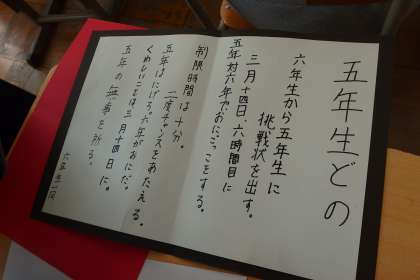 五年生どの
六年生から五年生に
挑戦状を出す。
三月十四日、六時間目に
五年対六年でおにごっこをする。
制限時間は十分。
二度チャンスをあたえる。
五年はにげろ、六年がおにだ。
くわしいことは三月十四日に。
五年の無事を祈る。
六年